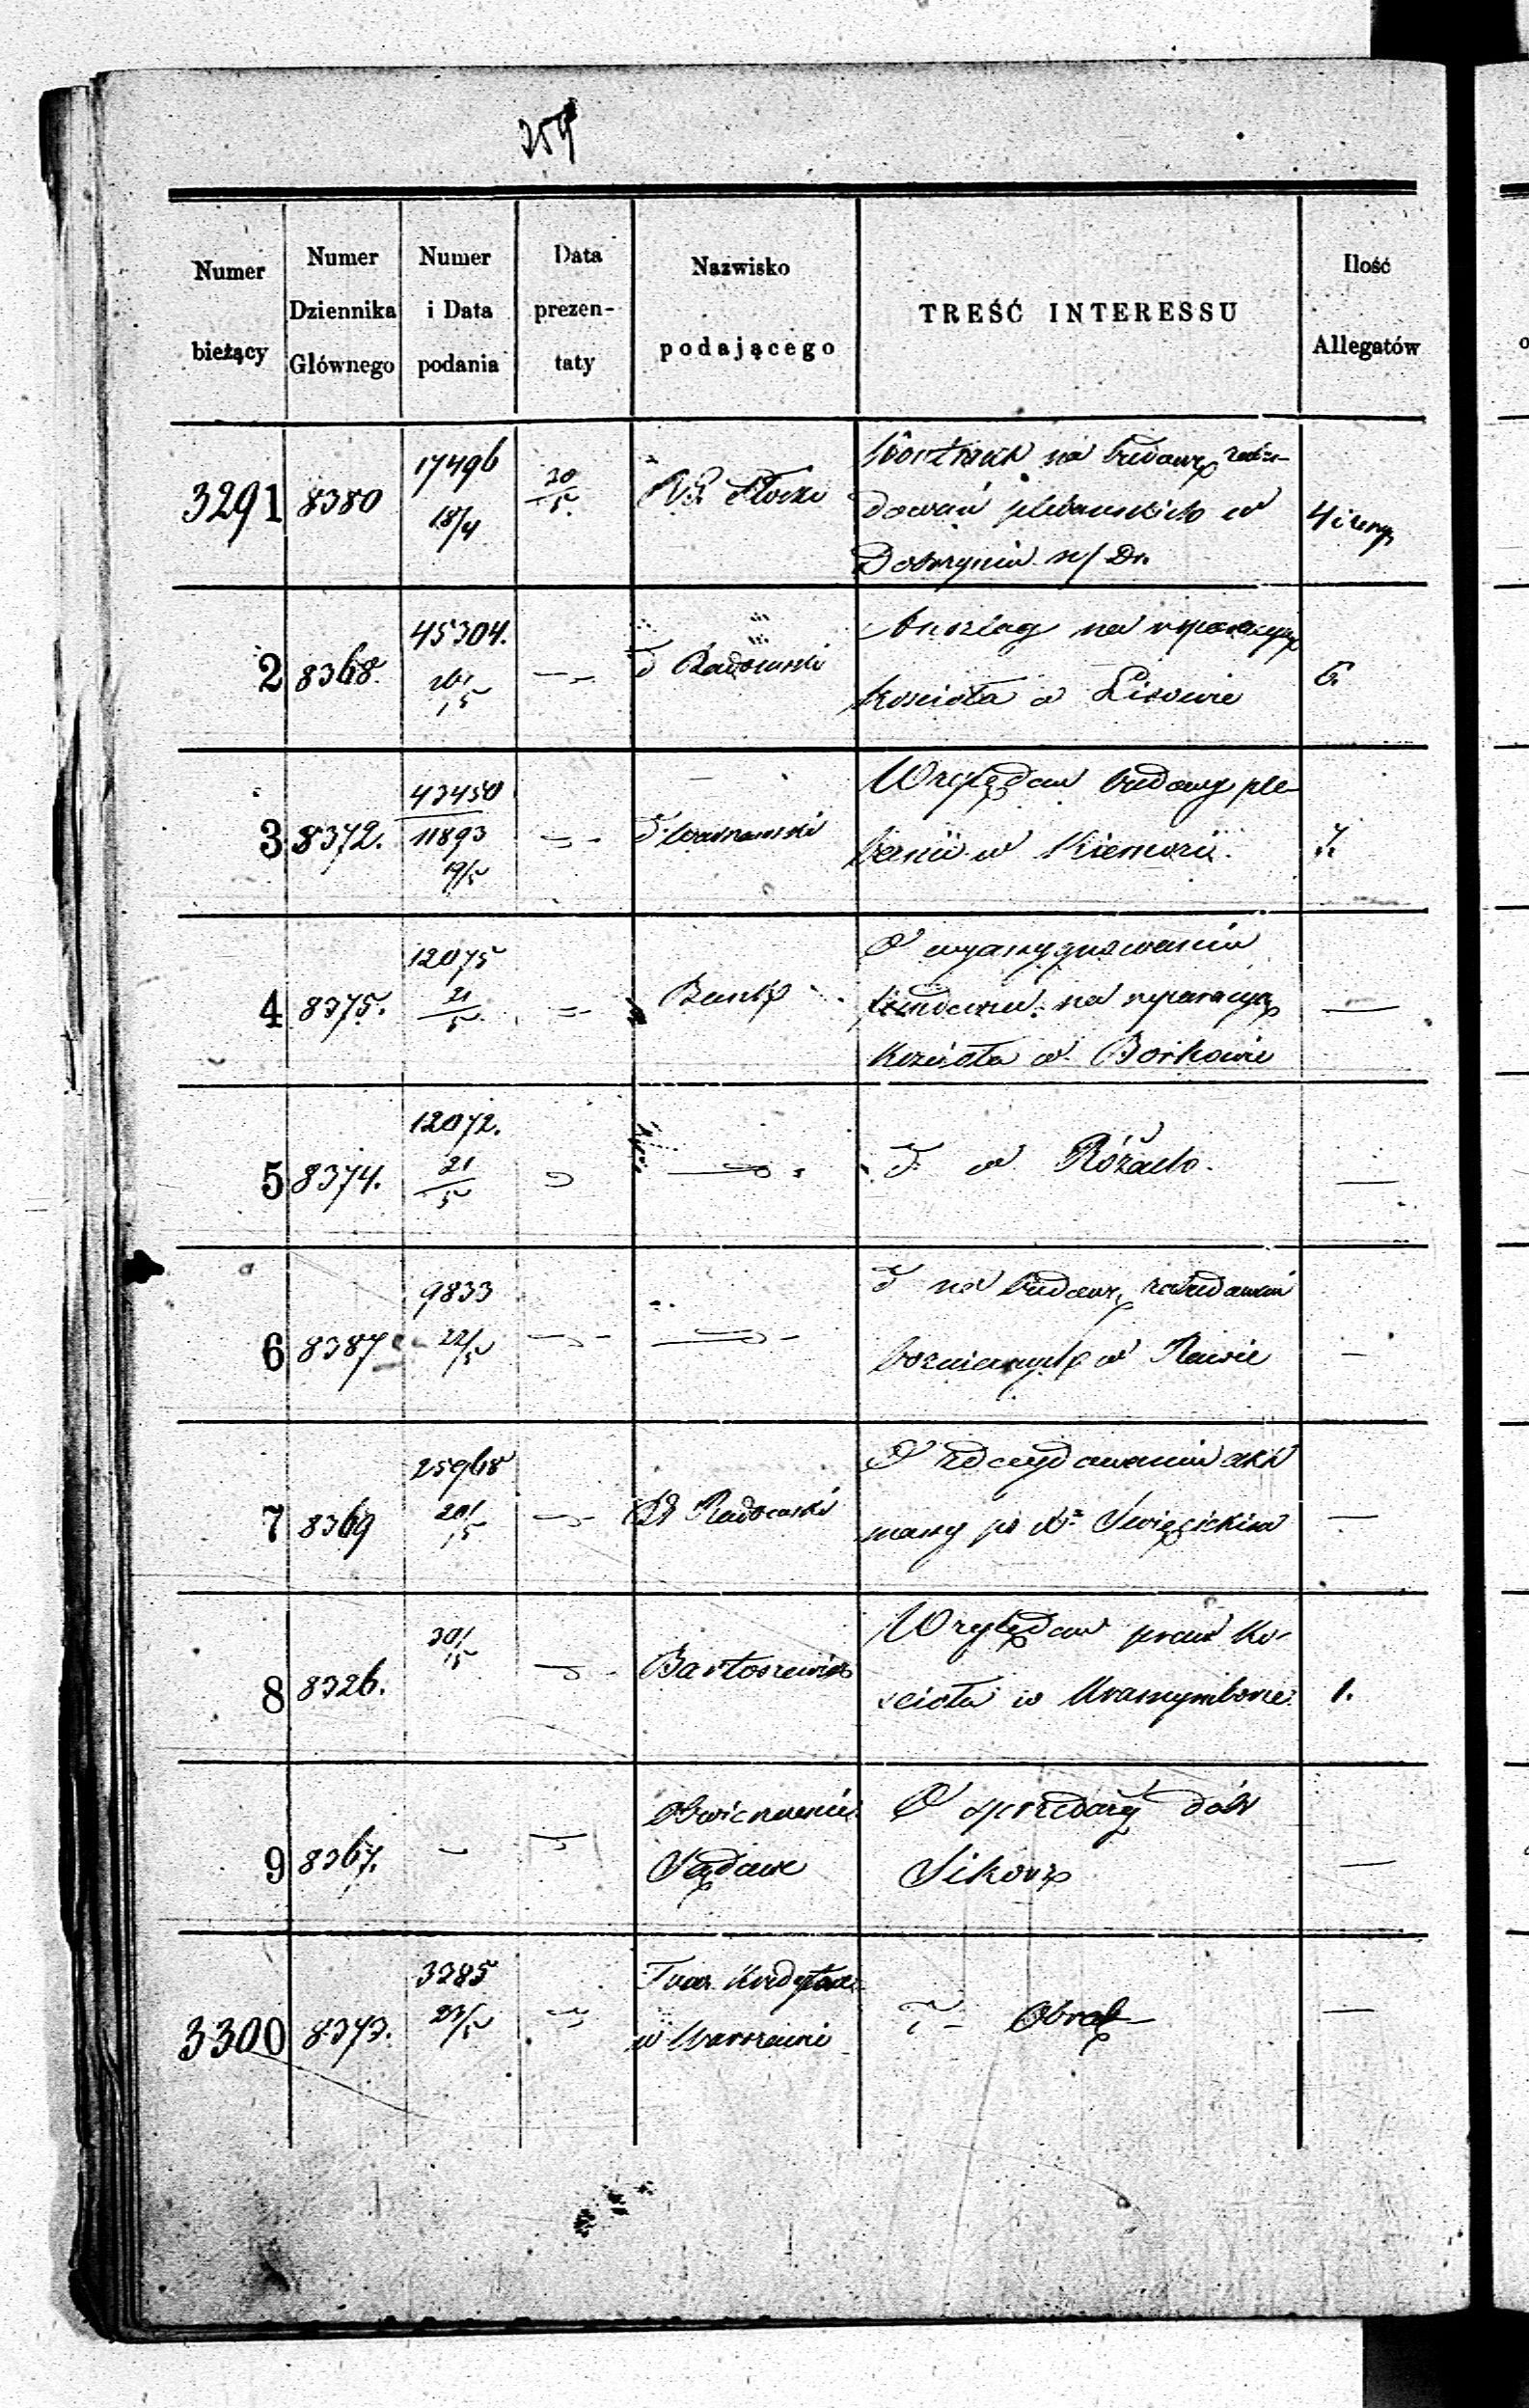 259
Numer bieżący
Numer Dziennika Głównego
Numer i Data podania
Data prezen-taty
Nazwisko podającego
TREŚĆ INTERESSU
Ilość Allegatów
3291 8380 17496 18/4 20/5 R. G. Płocki
na budowę zabu-
dowań plebańskich w
Dobrzyniu n/ Dr.
2 8368 45304. 20/5 Radomski
Anszlag na reparacyą
kościoła w Lisowie 6.
3 8372. 43450 11893 19/5 Warszawski
Względem budowy ple-
banii w Kiemozi.
4 8375. 12075 21/5 Bank
O wyassygnowanie
funduszu na reparacyą
kościoła w Borkowie —
5 8374. 12072. 21/5
w Różach. —
6 8387 9833 22/5
na budowę zabudowań
w Rawie —
7 8369 25968 20/5 Radomski
O akt
massy po Święcickim —
8 8326. 30/5 Bartoszewicz
Względem praw ko-
ścioła w 1.
9 8367. Obwieszczenie
Sądowe
O sprzedaży dóbr
Sikory —
3300 8373. 3285 23/5 Towar. Kredytowe
w Warszawie
Obrąb —